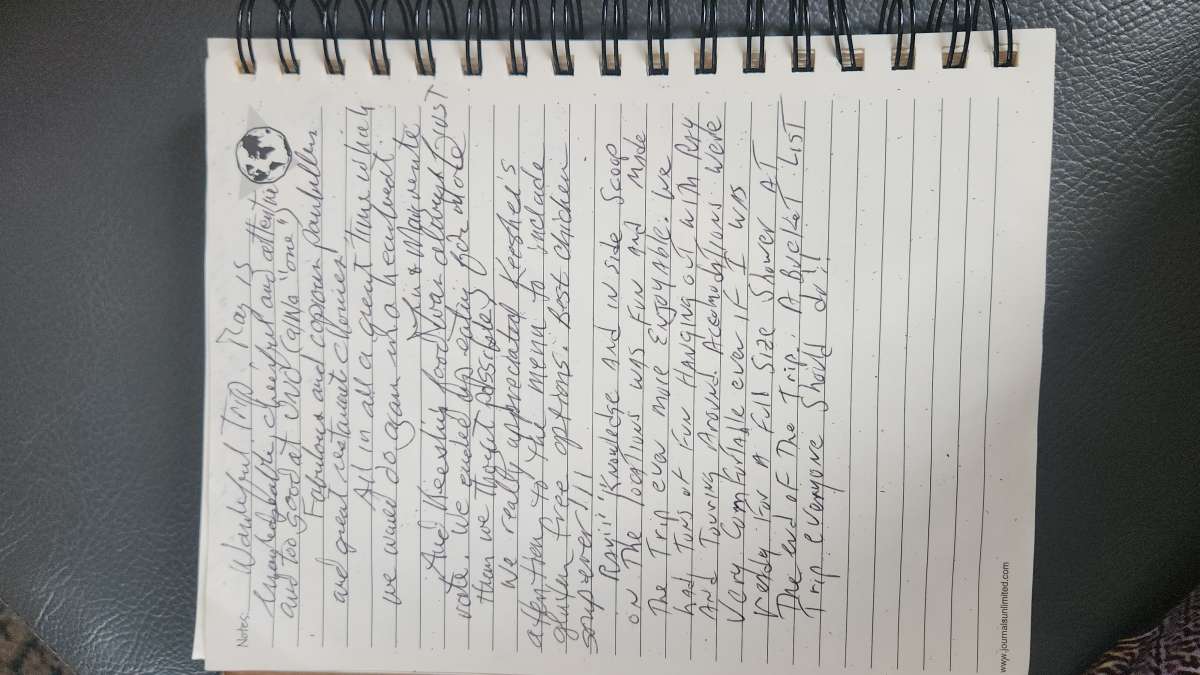 Notes:
Wonderful Trip Ray is
knowledgable, cheerful and attentive
and too good at civd cama "ome"?
Fabulous and copious paintballers
and great restaurant choices!
All in all a great time which
we would do again w/o a hesitant.
John & Mary
And Keeshia's food was always just
vote. We ended up eating far more
than we thought possible!
We really appreciated Keeshia's
attention to the menu to include
gluten free options. Best chicken
soup ever!!!
Rayii' Knowledge and in side Scoop
on The locations was Fun and Made
The Trip even more Enjoyable. We
had Tons of Fun Hanging out with Ray
And Touring Around. Accomodations were
Very Comfortable even IF I was
ready For A Full Size Shower AT
The end of The Trip. A Bucket List
Trip everyone Should do!!
www.journalsunlimited.com